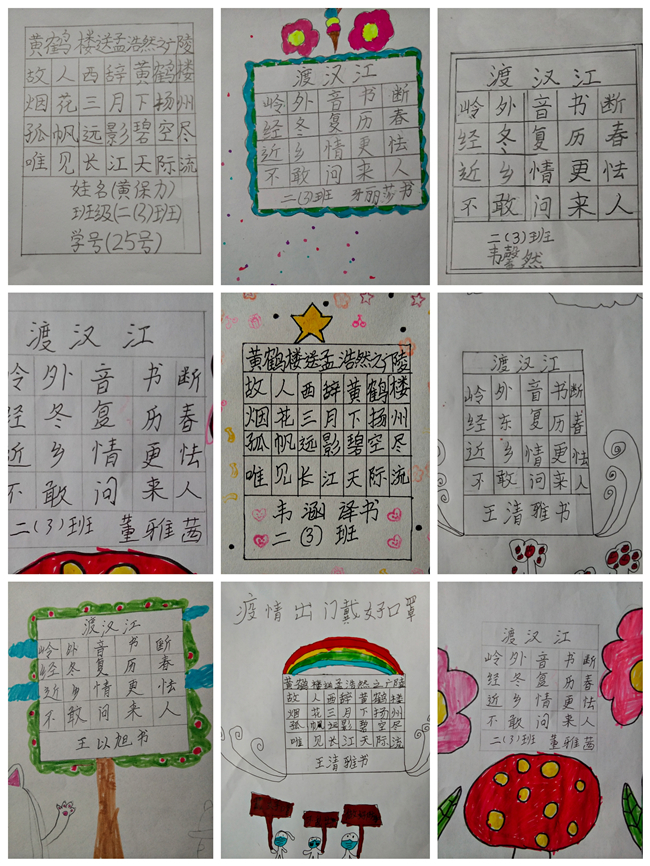 黄鹤楼送孟浩然之广陵
故人西辞黄鹤楼
烟花三月下扬州
孤帆远影碧空尽
唯见长江天际流
姓名(黄保力)
班级(二(3)班)
学号(25号)
渡汉江
岭外音书断
经冬复历春
近乡情更怯
不敢问来人
二(3)班 牙丽莎书
渡汉江
岭外音书断
经冬复历春
近乡情更怯
不敢问来人
二(3)班
韦馨然
渡汉江
岭外音书断
经冬复历春
近乡情更怯
不敢问来人
二(3)班 董雅茜
黄鹤楼送孟浩然之广陵
故人西辞黄鹤楼
烟花三月下扬州
孤帆远影碧空尽
唯见长江天际流
韦涵译书
二(3)班
渡汉江
岭外音书断
经东复历春
近乡情更怯
不敢问来人
王清雅书
渡汉江
岭外音书断
经冬复历春
近乡情更怯
不敢问来人
王以旭书
疫情出门戴好口罩
黄鹤楼送孟浩然之广陵
故人西辞黄鹤楼
烟花三月下扬州
孤帆远影碧空尽
唯见长江天际流
王清雅书
渡汉江
岭外音书断
经冬复历春
近乡情更怯
不敢问来人
二(3)班 董雅茜